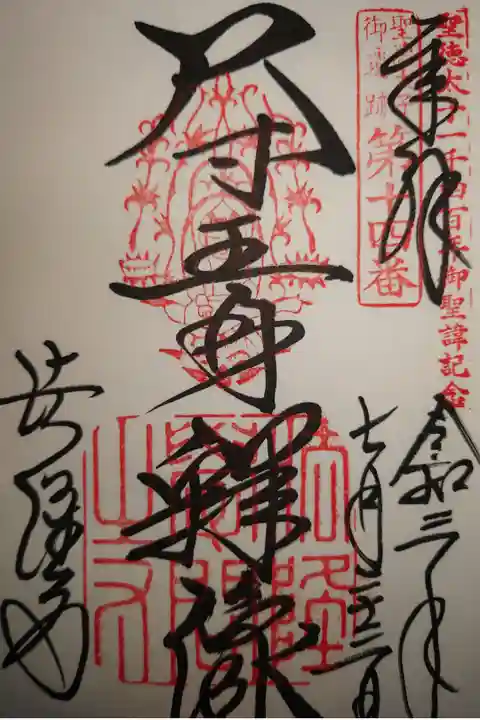 聖徳太子一千四百年御聖諱記念
奉拝
聖徳太子
御遺跡
第十四番
令和三年
七月
尺寸王身釋像
法隆寺